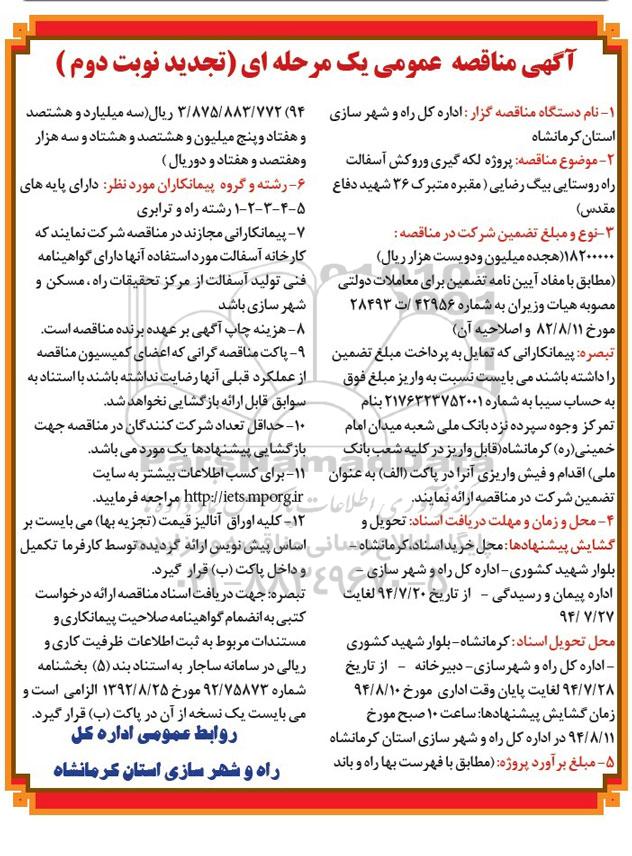 آگهی مناقصه عمومی یک مرحله ای (تجدید نوبت دوم)
۱- نام دستگاه مناقصه گزار: اداره کل راه و شهر سازی
استان کرمانشاه
۲- موضوع مناقصه: پروژه لکه گیری وروکش آسفالت
راه روستایی بیگ رضایی (مقبره متبرک ۳۶ شهید دفاع
مقدس)
۳- نوع و مبلغ تضمین شرکت در مناقصه:
۱۸۲۰۰۰۰۰ (هجده میلیون ودویست هزار ریال)
(مطابق با مفاد آیین نامه تضمین برای معاملات دولتی
مصوبه هیات وزیران به شماره ۴۲۹۵۶ /ت ۲۸۴۹۳
مورخ ۸۲/۸/۱۱ و اصلاحیه آن)
تبصره: پیمانکارانی که تمایل به پرداخت مبلغ تضمین
را داشته باشند می بایست نسبت به واریز مبلغ فوق
به حساب سیبا به شماره ۲۱۷۶۳۲۳۷۵۲۰۰۱ بنام
تمرکز وجوه سپرده نزد بانک ملی شعبه میدان امام
خمینی(ره) کرمانشاه(قابل واریز در کلیه شعب بانک
ملی) اقدام و فیش واریزی آنرا در پاکت (الف) به عنوان
تضمین شرکت در مناقصه ارائه نمایند.
۴- محل و زمان و مهلت دریافت اسناد: تحویل و
گشایش پیشنهادها: محل خرید اسناد: کرمانشاه-
بلوار شهید کشوری- اداره کل راه و شهر سازی -
اداره پیمان و رسیدگی - از تاریخ ۹۴/۷/۲۰ لغایت
۹۴/ ۷/۲۷
محل تحویل اسناد: کرمانشاه- بلوار شهید کشوری
- اداره کل راه و شهرسازی- دبیرخانه - از تاریخ
۹۴/۷/۲۸ لغایت پایان وقت اداری مورخ ۹۴/۸/۱۰
زمان گشایش پیشنهادها: ساعت ۱۰ صبح مورخ
۹۴/۸/۱۱ در اداره کل راه و شهر سازی استان کرمانشاه
۵- مبلغ برآورد پروژه: (مطابق با فهرست بها راه و باند
۹۴) ۳/۸۷۵/۸۸۳/۷۷۲ ریال(سه میلیارد و هشتصد
و هفتاد و پنج میلیون و هشتصد و هشتاد و سه هزار
وهفتصد و هفتاد و دوریال)
۶- رشته و گروه پیمانکاران مورد نظر: دارای پایه های
۵-۴-۳-۲-۱ رشته راه و ترابری
۷- پیمانکارانی مجازند در مناقصه شرکت نمایند که
کارخانه آسفالت مورد استفاده آنها دارای گواهینامه
فنی تولید آسفالت از مرکز تحقیقات راه ، مسکن و
شهر سازی باشد
۸- هزینه چاپ آگهی بر عهده برنده مناقصه است.
۹- پاکت مناقصه گرانی که اعضای کمیسیون مناقصه
از عملکرد قبلی آنها رضایت نداشته باشند با استناد به
سوابق قابل ارائه بازگشایی نخواهد شد.
۱۰- حداقل تعداد شرکت کنندگان در مناقصه جهت
بازگشایی پیشنهادها یک مورد می باشد.
۱۱- برای کسب اطلاعات بیشتر به سایت
http://iets.mporg.ir مراجعه فرمایید.
۱۲- کلیه اوراق آنالیز قیمت (تجزیه بها) می بایست بر
اساس پیش نویس ارائه گردیده توسط کارفرما تکمیل
و داخل پاکت (ب) قرار گیرد.
تبصره: جهت دریافت اسناد مناقصه ارائه درخواست
کتبی به انضمام گواهینامه صلاحیت پیمانکاری و
مستندات مربوط به ثبت اطلاعات ظرفیت کاری و
ریالی در سامانه ساجار به استناد بند (۵) بخشنامه
شماره ۹۲/۷۵۸۷۳ مورخ ۱۳۹۲/۸/۲۵ الزامی است و
می بایست یک نسخه از آن در پاکت (ب) قرار گیرد.
روابط عمومی اداره کل
راه و شهر سازی استان کرمانشاه
ParsNamadData
۰۲۱-۸۸۳۴۹۶۷۰-۵